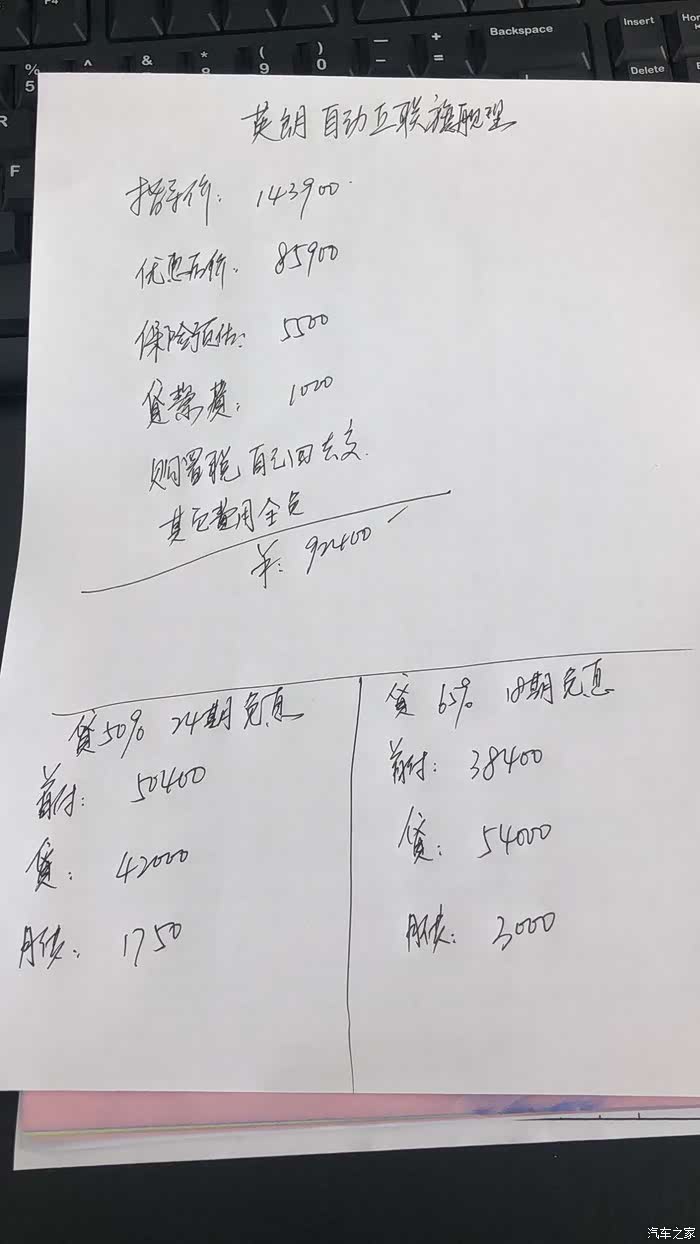 %
5
^
&
*
8
(
9
)
0
—
-
+
=
Backspace
Insert
Delete
R
F
英朗 自动互联旗舰型
指导价: 143900
优惠后价: 85900
保险预估: 5500
贷款费: 1000
购置税 自己回去交.
其它费用全免
共: 92400
贷50% 24期免息
首付: 50400
贷: 42000
月供: 1750
贷 65% 18期免息
首付: 38400
贷: 54000
月供: 3000
汽车之家